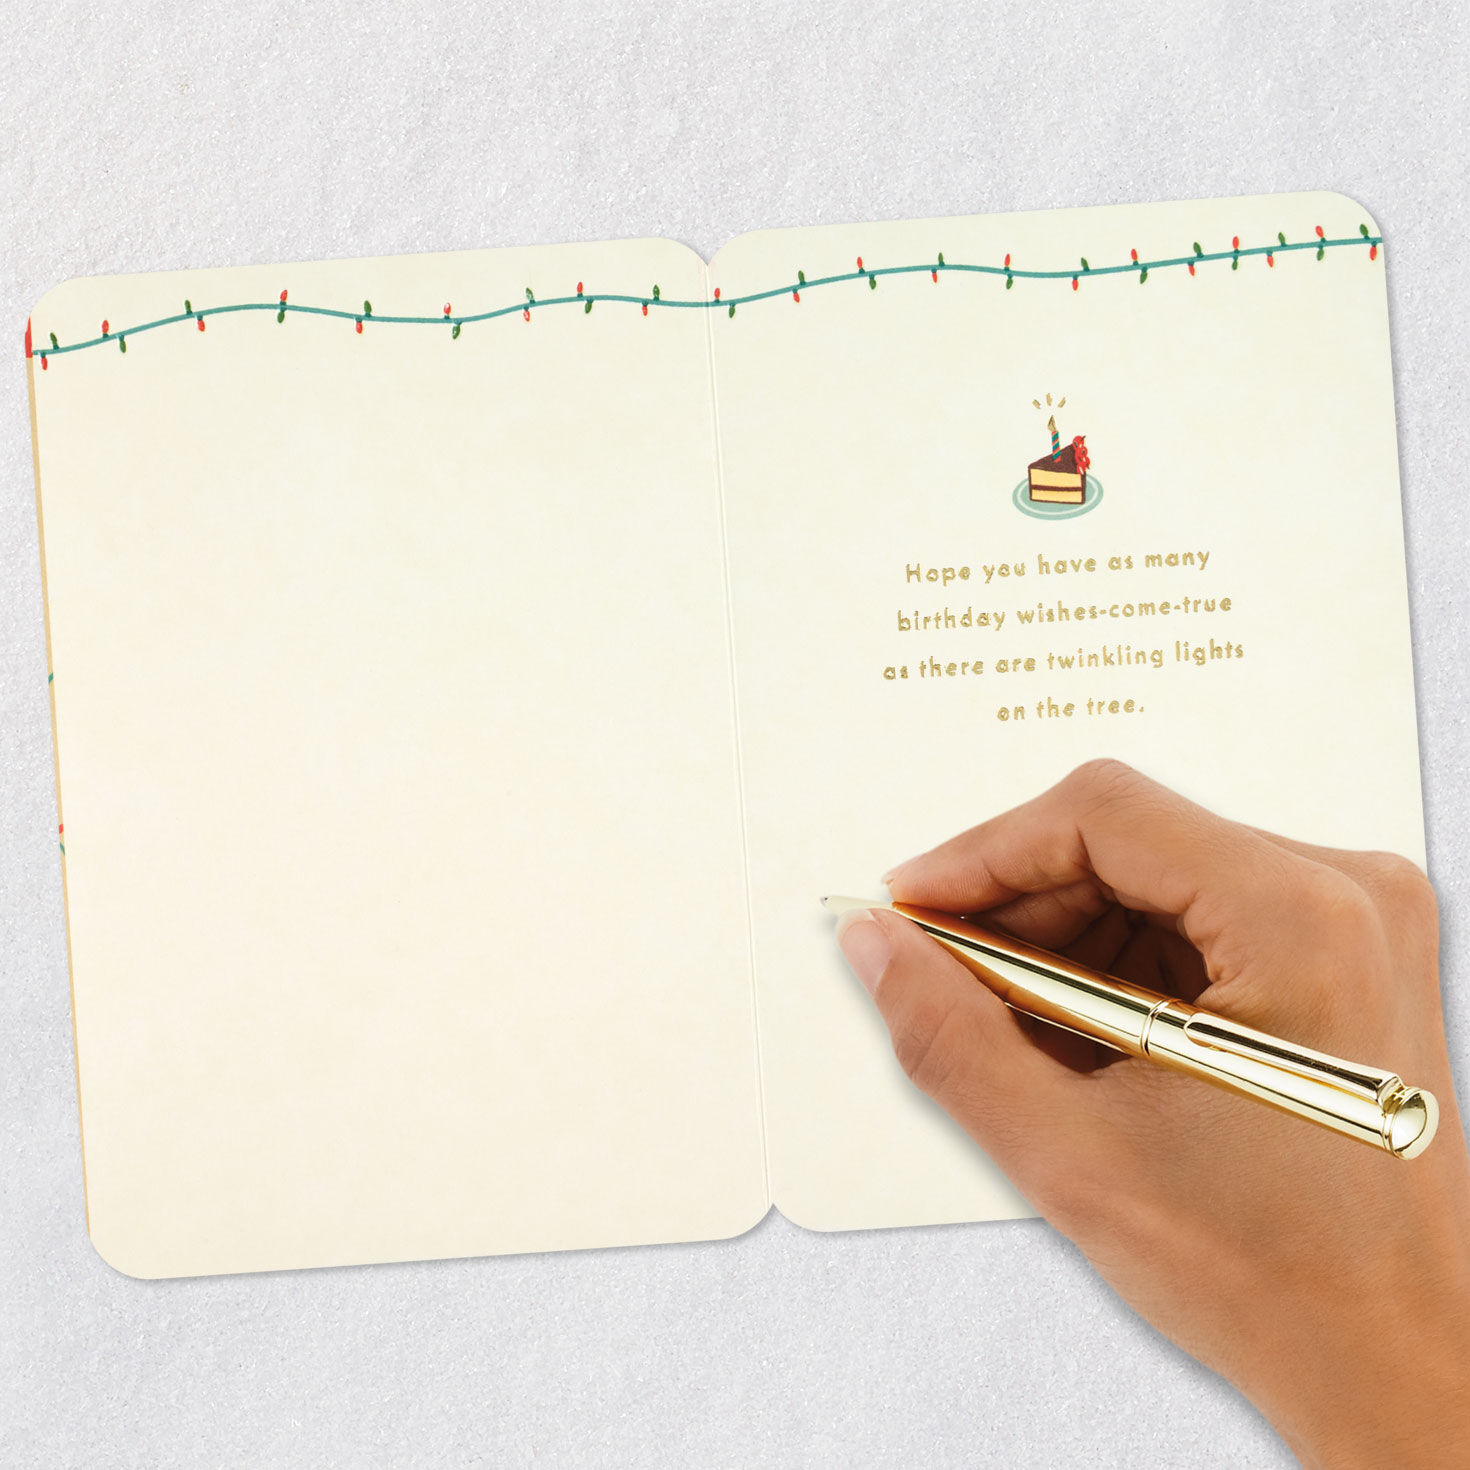 Hope you have as many
birthday wishes-come-true
as there are twinkling lights
on the tree.